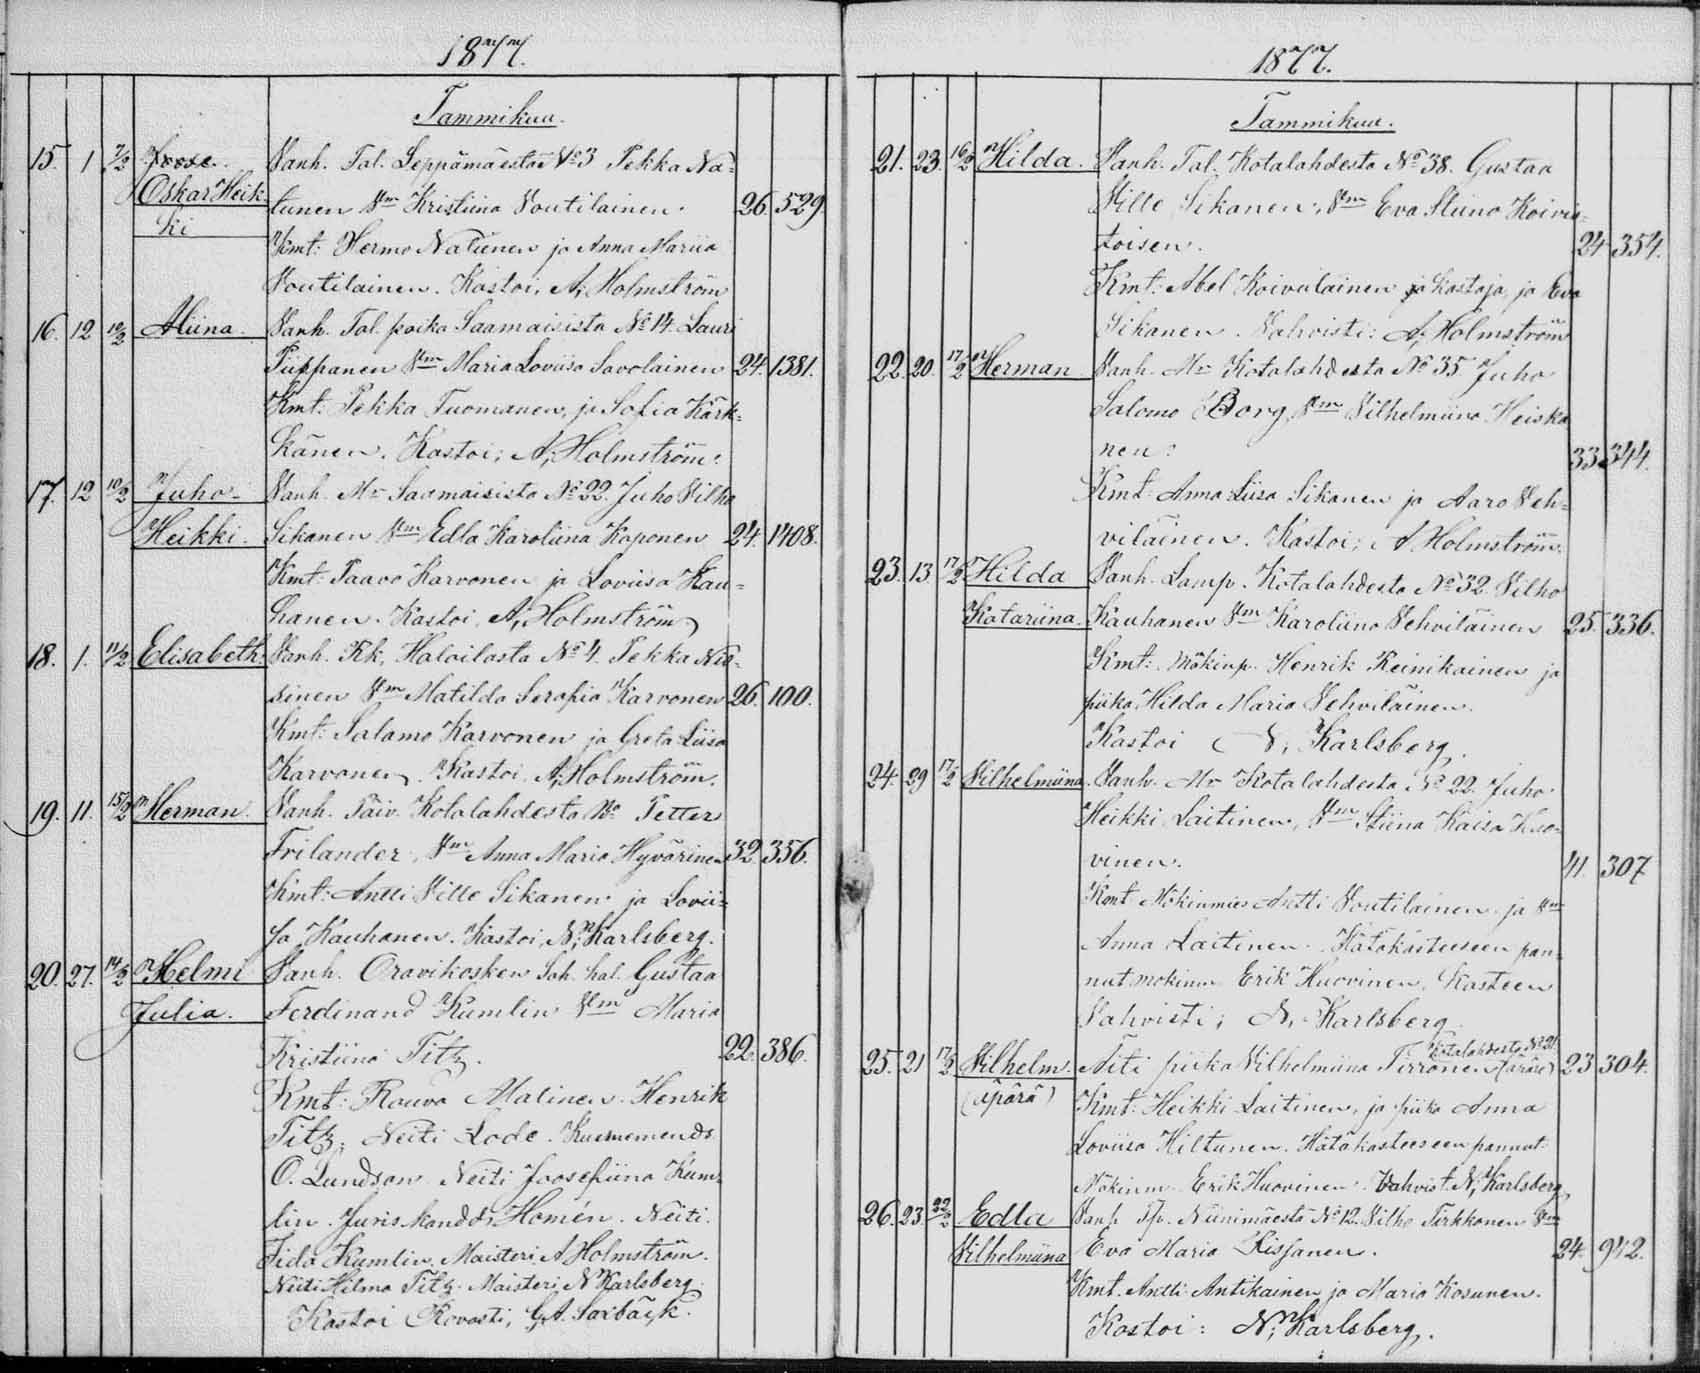 1877.
Tammikuu.
15. 1 7/2 Joose. Vanh. Tal. Seppämäestä No 3 Pekka Na=
Oskar Heik tunen Vm Kristiina Voutilainen. 26. 529
ki
Kmt: Hermo Natunen ja Anna Mariia
Voutilainen. Kastoi, A, Holmström
16. 12 10/2 Aliina. Vanh. Tal. poika Saamaisista No 14. Lauri
Piippanen Vm Maria Loviisa Savolainen 24. 1381.
Kmt: Pekka Tuomanen, ja Sofia Kärk=
känen. Kastoi; A, Holmström.
17. 12 10/2 Juho- Vanh. Mr Saamaisista No 22. Juho Vilho
Heikki. Sikanen Vm Edla Karoliina Koponen 24. 1408.
Kmt: Paavo Karvonen ja Loviisa Kau=
hanen. Kastoi, A, Holmström
18. 1. 11/2 Elisabeth. Vanh. Kk, Haloilasta No 4. Pekka Nis=
sinen Vm Matilda Serafia Karvonen 26. 100.
Kmt: Salamo Karvonen ja Greta Liisa
Karvonen. Kastoi, A, Holmström.
19. 11. 15/2 Herman. Vanh. Päiv. Kotalahdesta No Petter
Frilander, Vm Anna Maria Hyvärinen 32. 356.
Kmt: Antti Ville Sikanen ja Lovii=
sa Kauhanen. Kastoi, N, Karlsberg.
20. 27. 14/2 Helmi Vanh. Oravikosken Sah. hal. Gustaa
Julia. Ferdinand Kumlin Vm Maria
Kristiina Titz. 22. 386.
Kmt: Rouva Malinen. Henrik
Titz, Neiti Lode.
O. Lundson Neiti Joosefiina Kum=
lin. Juris kandd. Homén. Neiti.
Fida Kumlin, Maisteri A Holmström.
Neiti Hilma Titz. Maisteri N Karlsberg.
Kastoi Rovasti, G.A. Saxbäck.
1877.
Tammikuu.
21. 23. 16/2 Hilda. Vanh. Tal. Kotalahdesta No 38. Gustaa
Ville Sikanen, Vm Eva Stiina Koivis=
toisen. 24 354.
Kmt: Abel Koivulainen ja kastaja, ja Eva
Sikanen. Vahvisti: A, Holmström
22. 20. 17/2 Herman Vanh. Mr Kotalahdesta No 35 Juho
Salomo Borg, Vm Vilhelmiina Heiska
nen. 33 344.
Kmt: Anna Liisa Sikanen ja Aaro Veh=
viläinen. Kastoi; A Holmström.
23. 13. 17/2 Hilda Vanh. Lamp. Kotalahdesta No 32. Vilho
Katariina. Kauhanen Vm Karoliina Vehviläinen 25. 336.
Kmt: Mökinp. Henrik Reinikainen ja
piika Hilda Maria Vehviläinen.
Kastoi N, Karlsberg.
24. 29 17/2 Vilhelmiina. Vanh. Mr Kotalahdesta No 22. Juho
Heikki Laitinen, Vm Stiina Kaisa Huo=
vinen. 41. 307
Kmt Mökinmies Antti Voutilainen ja Vm
Anna Laitinen. Hätäkasteeseen pan=
nut mökinm Erik Huovinen, Kasteen
Vahvisti; N, Karlsberg
25. 21 17/2 Vilhelm. Äiti piika Vilhelmiina Tirronen Kotalahdesta No 21 23 304.
(äpärä) Kmt: Heikki Laitinen, ja piika Anna
Loviisa Hiltunen. Hätäkasteeseen pannut
Mökinm. Erik Huovinen. Vahvist. N, Karlsberg
26. 23. 22/2 Edla Vanh Tp. Niinimäestä No 12. Vilho Tirkkonen Vm
Vilhelmiina Eva Maria Rissanen. 24. 942.
Kmt. Antti Antikainen ja Maria Kosunen.
Kastoi: N, Karlsberg.